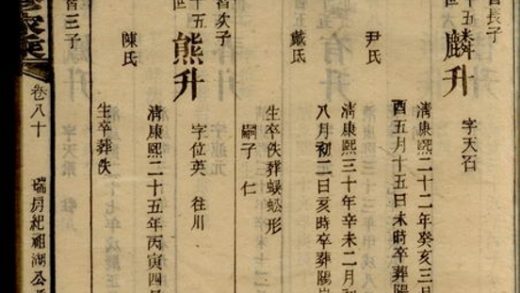 長子
十五世
麟升
字天石
清康熙二十二年癸亥三
酉五月十五日未時卒葬陽
尹氏
清康熙三十年辛未二月初
八月初二日亥時卒葬陽
戴氏
生卒佚葬蜈蚣形
嗣子 仁
次子
十五世
熊升
字位英 往川
清康熙二十五年丙寅四
陳氏
生卒葬佚
三子
卷八十
瑞房紀祖湖公